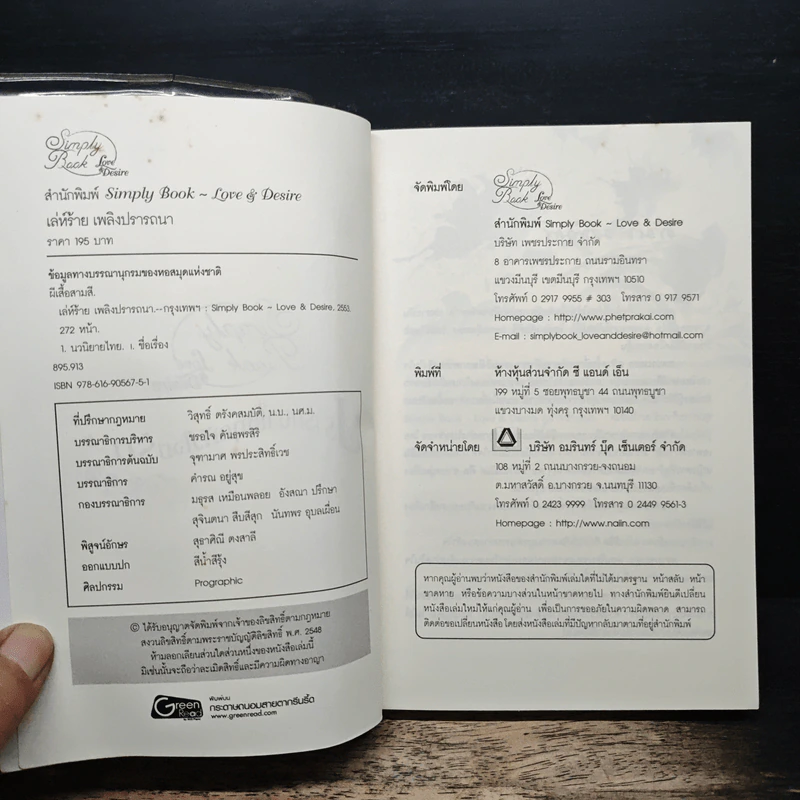 Simply Book Love & Desire
สำนักพิมพ์ Simply Book ~ Love & Desire
เล่ห์ร้าย เพลิงปรารถนา
ราคา 195 บาท
ข้อมูลทางบรรณานุกรมของหอสมุดแห่งชาติ
ผีเสื้อสามสี.
เล่ห์ร้าย เพลิงปรารถนา.--กรุงเทพฯ : Simply Book ~ Love & Desire, 2553.
272 หน้า.
1. นวนิยายไทย. I. ชื่อเรื่อง
895.913
ISBN 978-616-90567-5-1
ที่ปรึกษากฎหมาย วิสุทธิ์ ตรังคสมบัติ, น.บ., นศ.ม.
บรรณาธิการบริหาร ขรอใจ คันธพรสิริ
บรรณาธิการต้นฉบับ จุฑามาศ พรประสิทธิ์เวช
บรรณาธิการ คำรณ อยู่สุข
กองบรรณาธิการ มธุรส เหมือนพลอย อังสณา ปรึกษา
สุจินตนา สืบสีสุก นันทพร อุบลเผื่อน
พิสูจน์อักษร สุธาศิณี ดงสาลี
ออกแบบปก สีน้ำสีรุ้ง
ศิลปกรรม Prographic
© ได้รับอนุญาตจัดพิมพ์จากเจ้าของลิขสิทธิ์ตามกฎหมาย
สงวนลิขสิทธิ์ตามพระราชบัญญัติลิขสิทธิ์ พ.ศ. 2548
ห้ามลอกเลียนส่วนใดส่วนหนึ่งของหนังสือเล่มนี้
มิเช่นนั้นจะถือว่าละเมิดสิทธิ์และมีความผิดทางอาญา
Green Read
พิมพ์บน
กระดาษถนอมสายตากรีนรี้ด
www.greenread.com
จัดพิมพ์โดย Simply Book Love & Desire
สำนักพิมพ์ Simply Book ~ Love & Desire
บริษัท เพชรประกาย จำกัด
8 อาคารเพชรประกาย ถนนรามอินทรา
แขวงมีนบุรี เขตมีนบุรี กรุงเทพฯ 10510
โทรศัพท์ 0 2917 9955 # 303 โทรสาร 0 917 9571
Homepage : http://www.phetprakai.com
E-mail : simplybook_loveanddesire@hotmail.com
พิมพ์ที่ ห้างหุ้นส่วนจำกัด ซี แอนด์ เอ็น
199 หมู่ที่ 5 ซอยพุทธบูชา 44 ถนนพุทธบูชา
แขวงบางมด ทุ่งครุ กรุงเทพฯ 10140
จัดจำหน่ายโดย บริษัท อมรินทร์ บุ๊ค เซ็นเตอร์ จำกัด
108 หมู่ที่ 2 ถนนบางกรวย-จงถนอม
ต.มหาสวัสดิ์ อ.บางกรวย จ.นนทบุรี 11130
โทรศัพท์ 0 2423 9999 โทรสาร 0 2449 9561-3
Homepage : http://www.naiin.com
หากคุณผู้อ่านพบว่าหนังสือของสำนักพิมพ์เล่มใดที่ไม่ได้มาตรฐาน หน้าสลับ หน้า
ขาดหาย หรือข้อความบางส่วนในหน้าขาดหายไป ทางสำนักพิมพ์ยินดีเปลี่ยน
หนังสือเล่มใหม่ให้แก่คุณผู้อ่าน เพื่อเป็นการขออภัยในความผิดพลาด สามารถ
ติดต่อขอเปลี่ยนหนังสือ โดยส่งหนังสือเล่มที่มีปัญหากลับมาตามที่อยู่สำนักพิมพ์